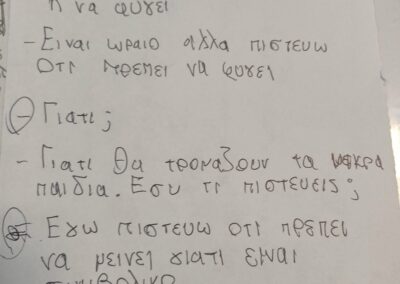 η να φυγει
- Ειναι ωραιο αλλα πιστευω
οτι πρεπει να φυγει
- Γιατι;
- Γιατι θα τρομαζουν τα μικρα
παιδια. Εσυ τι πιστευεις;
Εγω πιστευω οτι πρεπει
να μεινει γιατι ειναι
συμβολικο